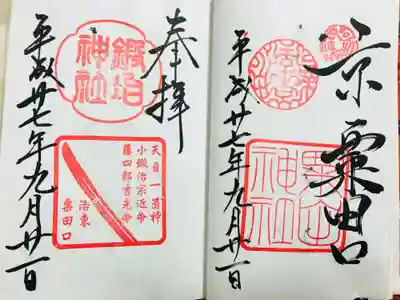 京 粟田口
粟田神社
平成廿七年九月廿一日
奉拝
鍛冶神社
天目一箇神
小鍛治宗近命
藤四郎吉光命
洛東
粟田口
平成廿七年九月廿一日